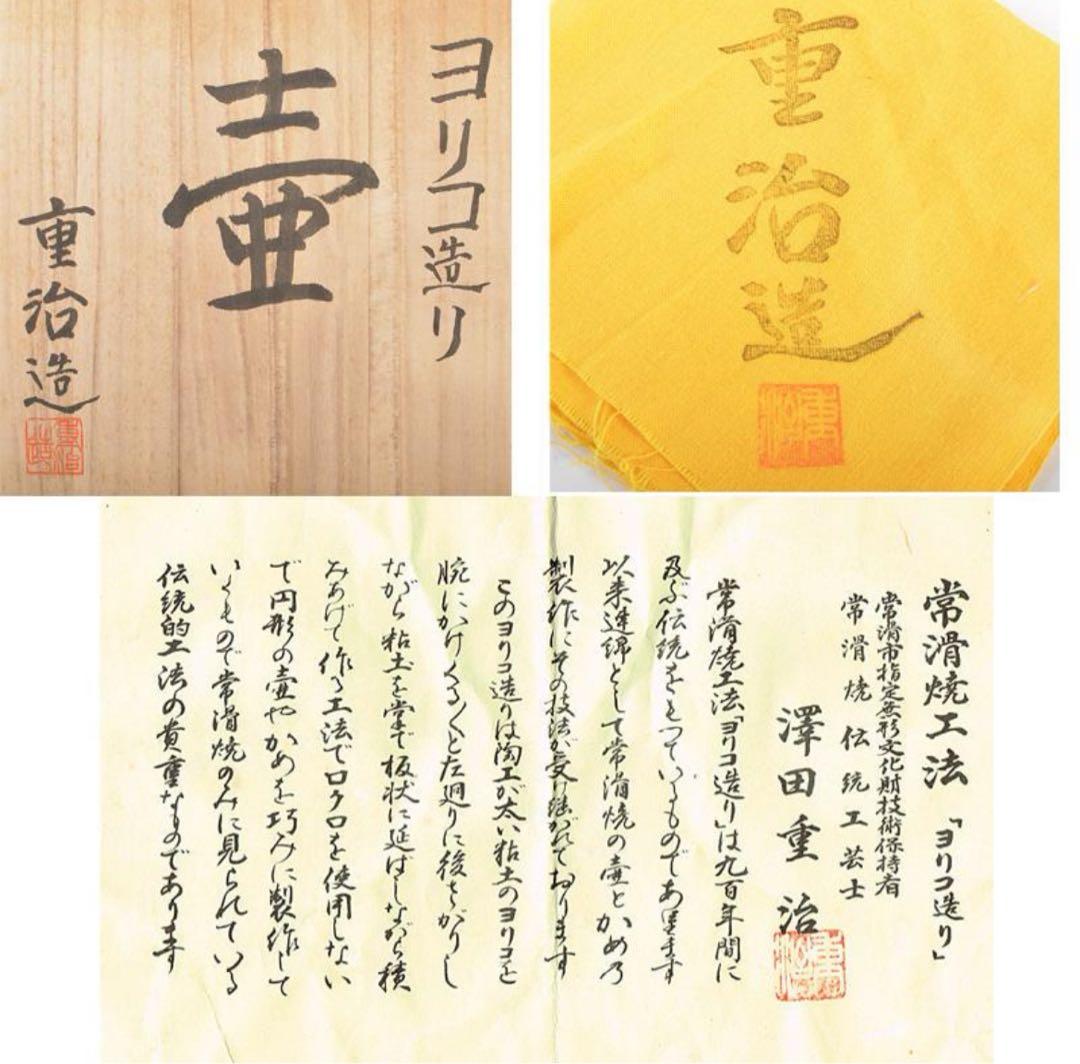 ヨリコ造り
壷
重治造
重治
重治造
重治
常滑焼工法「ヨリコ造り」
常滑市指定無形文化財技術保持者
常滑焼伝統工芸士
澤田重治
重治
常滑焼工法「ヨリコ造り」は九百年間に
及ぶ伝統をもっているものであります
以来連綿として常滑焼の壷とかめの
製作にその技法が受け継がれております
このヨリコ造りは陶工が太い粘土のヨリコを
腕にかけくるくると左廻りに後ずさりし
ながら粘土を掌で板状に延ばしながら積
みあげて作る工法でロクロを使用しない
で円形の壷やかめを巧みに製作して
いくもので常滑焼のみに見られている
伝統的工法の貴重なものであります